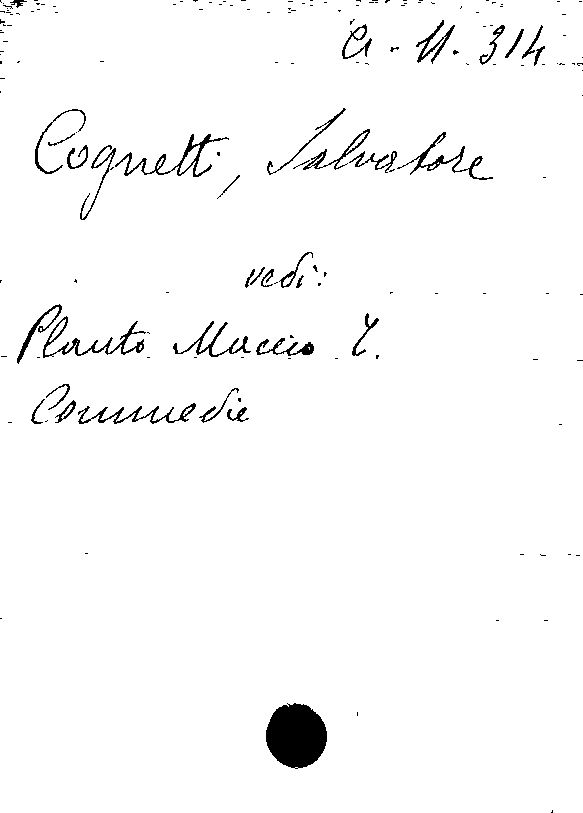 A-11-314
Cognetti, Salvatore
vedi:
Plauto Maccio T.
Commedie